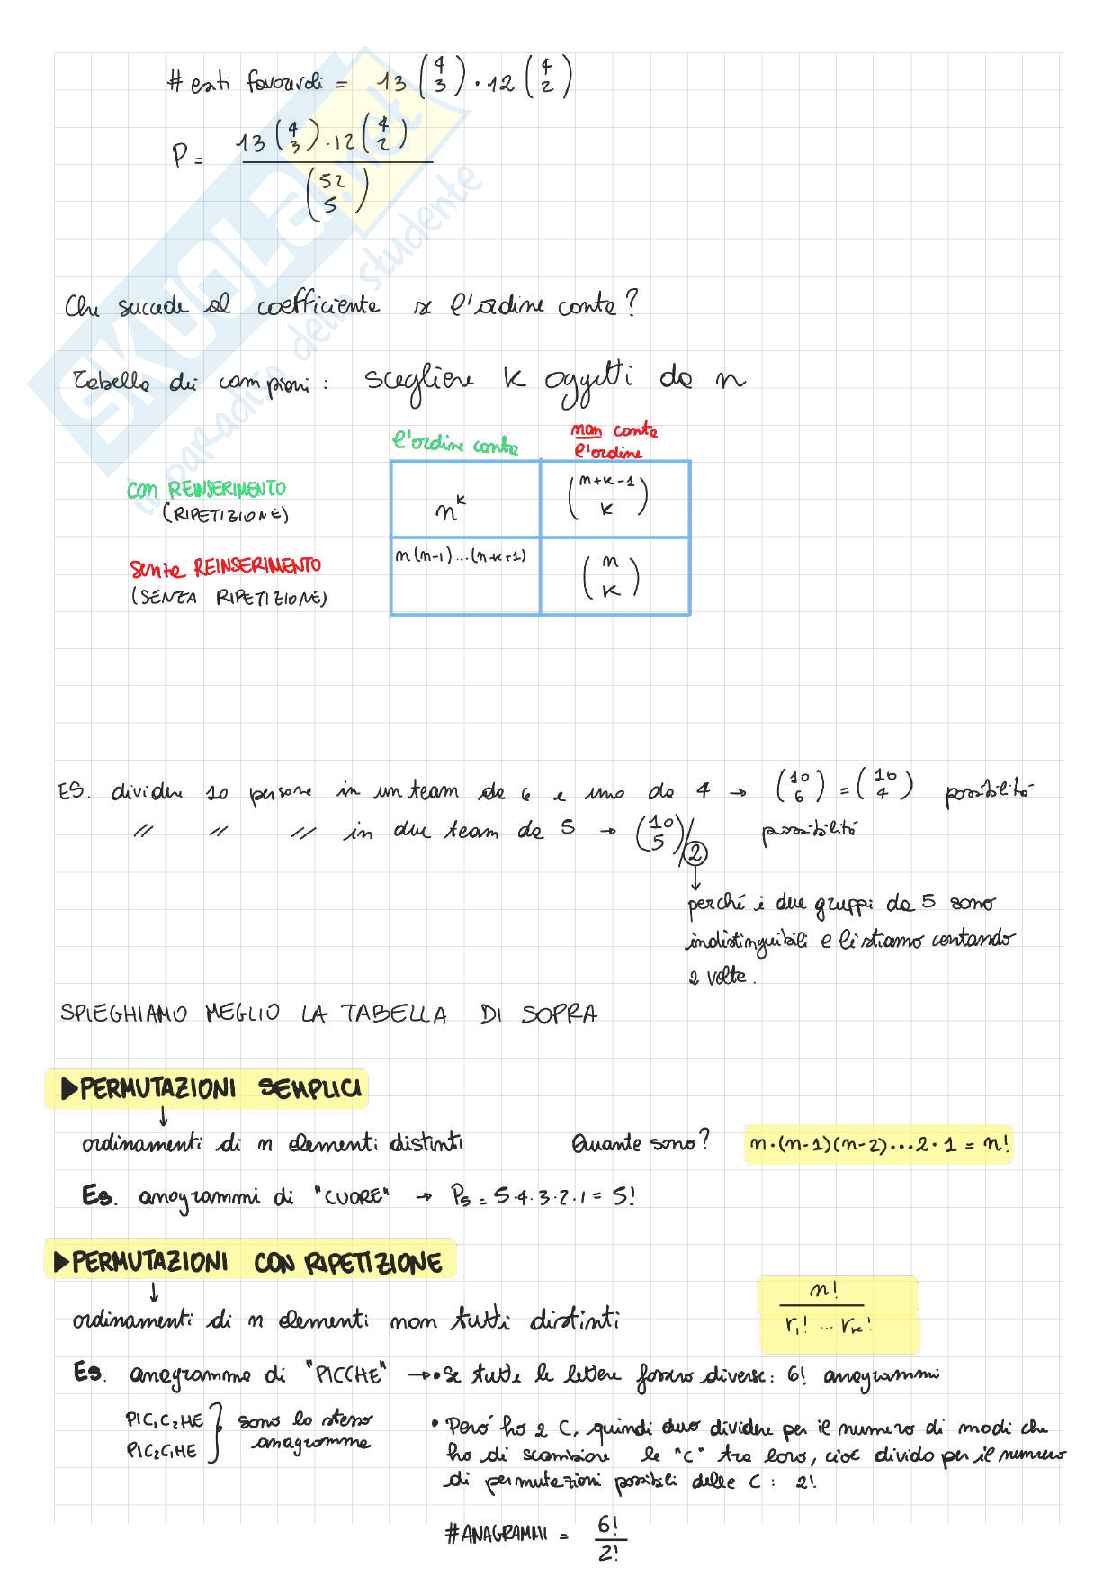 # esiti favorevoli = 13 (4 3) · 12 (4 2)
P = 13 (4 3) · 12 (4 2) / (52 5)
Che succede al coefficiente se l'ordine conta?
Tabella dei campioni : scegliere k oggetti da n
l'ordine conta
non conta l'ordine
CON REINSERIMENTO
(RIPETIZIONE)
n^k
(n+k-1 k)
senza REINSERIMENTO
(SENZA RIPETIZIONE)
n(n-1)...(n-k+1)
(n k)
ES. dividere 10 persone in un team da 6 e uno da 4 → (10 6) = (10 4) possibilità
// // // in due team da 5 → (10 5)/2 possibilità
perché i due gruppi da 5 sono
indistinguibili e li stiamo contando
2 volte.
SPIEGHIAMO MEGLIO LA TABELLA DI SOPRA
▶PERMUTAZIONI SEMPLICI
↓
ordinamenti di n elementi distinti Quante sono? n·(n-1)(n-2)...2·1 = n!
Es. anagrammi di "CUORE" → P5 = 5·4·3·2·1 = 5!
▶PERMUTAZIONI CON RIPETIZIONE
↓
ordinamenti di n elementi non tutti distinti n! / r1! ... rk!
Es. anagramma di "PICCHE" → • Se tutte le lettere fossero diverse: 6! anagrammi
PIC1C2HE
PIC2C1HE } sono lo stesso anagramma
• Però ho 2 C, quindi devo dividere per il numero di modi che
ho di scambiare le "C" tra loro, cioè divido per il numero
di permutazioni possibili delle C : 2!
#ANAGRAMMI = 6!/2!
SKUOLA.net
il paradiso dello studente